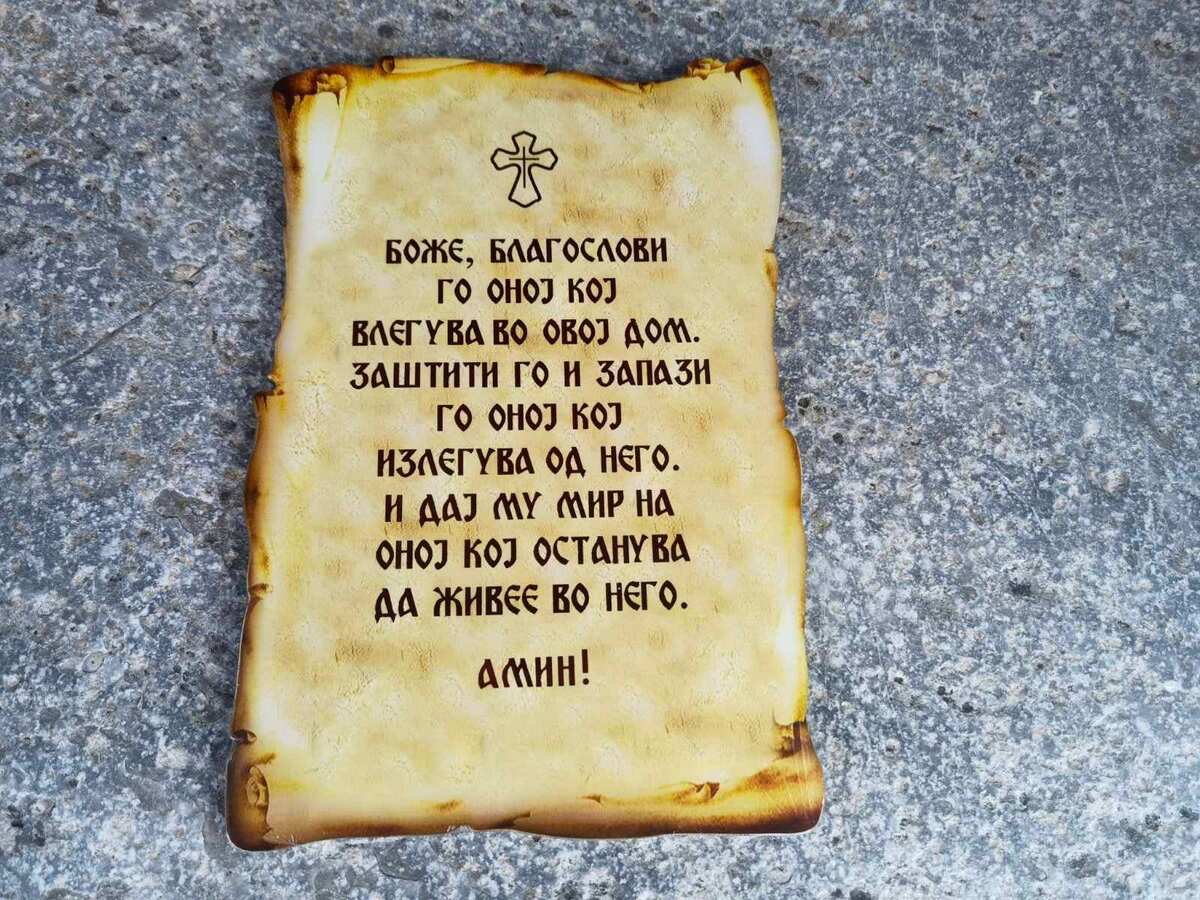 БОЖЕ, БЛАГОСЛОВИ
ГО ОНОЈ КОЈ
ВЛЕГУВА ВО ОВОЈ ДОМ.
ЗАШТИТИ ГО И ЗАПАЗИ
ГО ОНОЈ КОЈ
ИЗЛЕГУВА ОД НЕГО.
И ДАЈ МУ МИР НА
ОНОЈ КОЈ ОСТАНУВА
ДА ЖИВЕЕ ВО НЕГО.
АМИН!